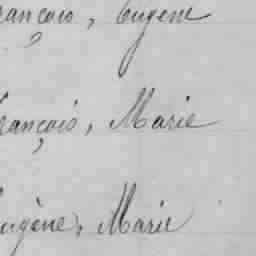 rançois, Eugène
rançois, Marie
Eugène, Marie